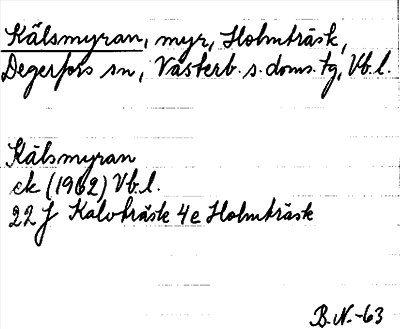 Kälsmyran, myr, Holmträsk,
Degerfors sn, Västerb. s. doms. tg, Vb. l.
Kälsmyran
ek (1962) Vb. l.
22 J Kalvträsk 4e Holmträsk
B. N. -63